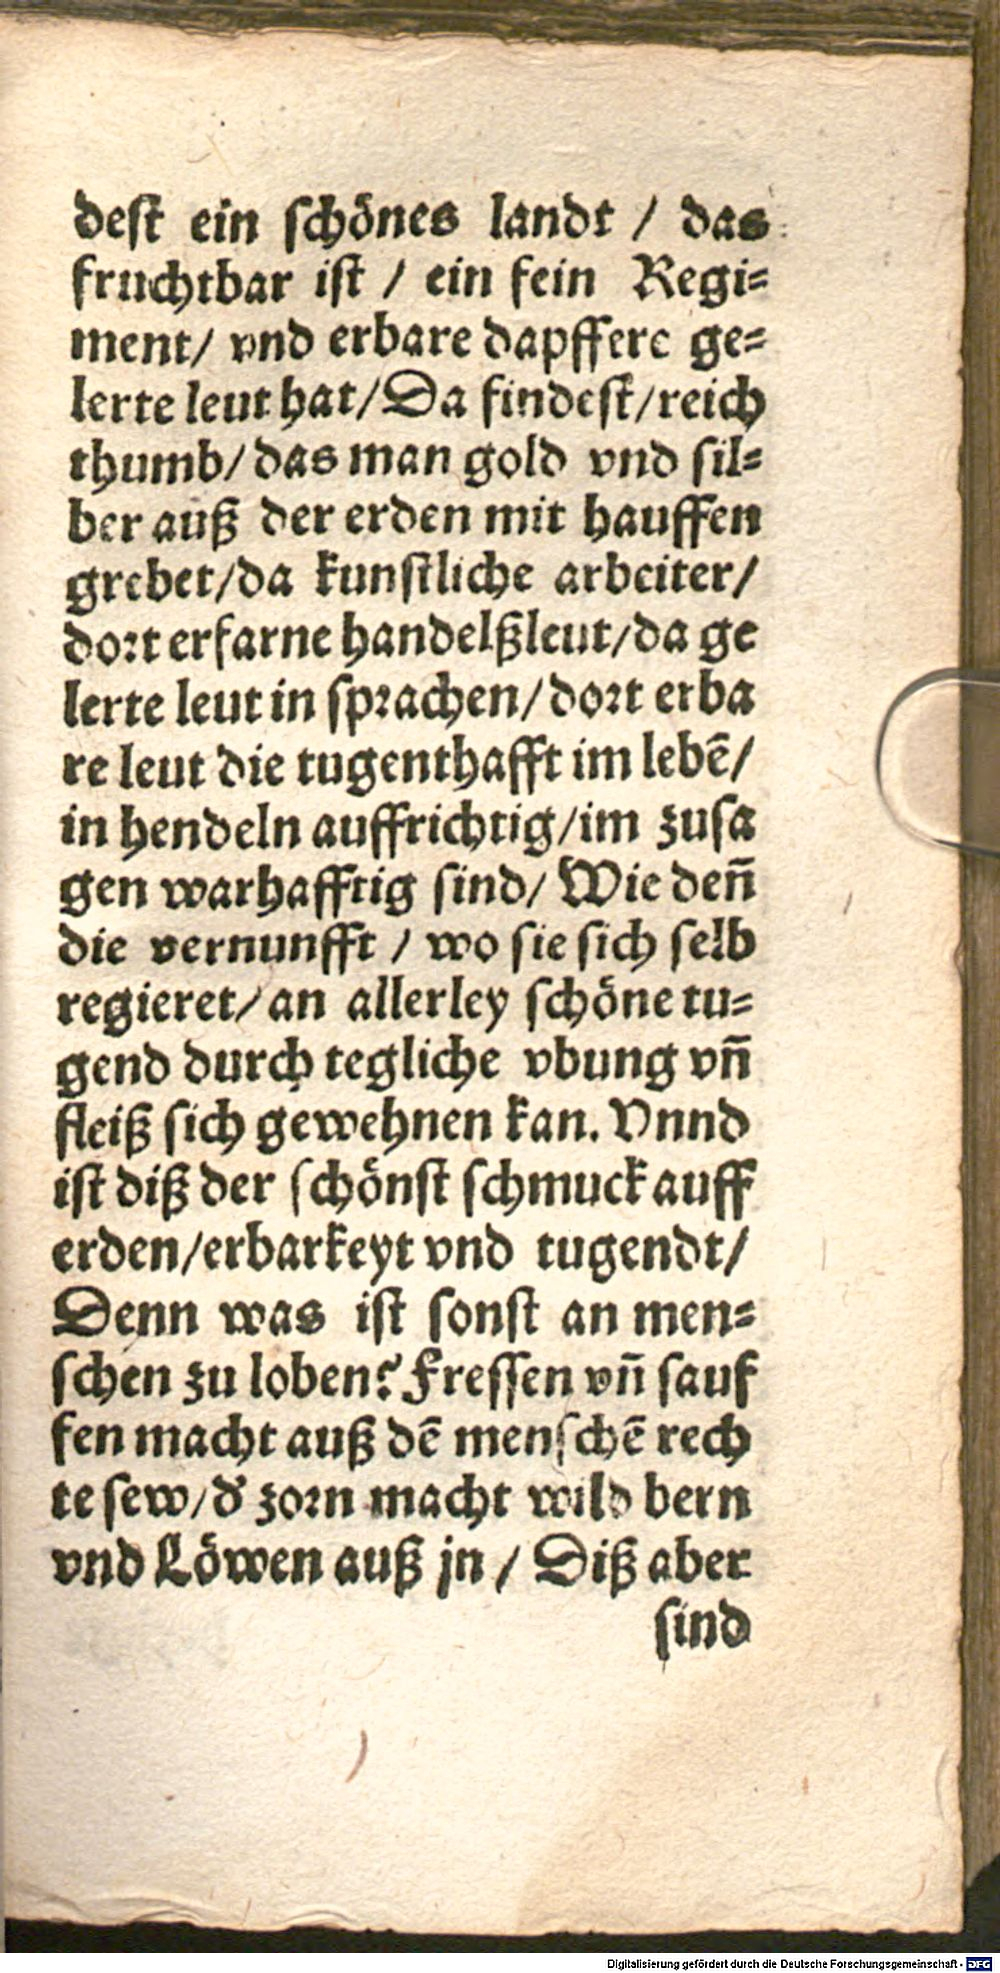 dest ein schönes landt / das
fruchtbar ist / ein fein Regi=
ment/ vnd erbare dapffere ge=
lerte leut hat/Da findest/reich
thumb/das man gold vnd sil=
ber auß der erden mit hauffen
grebet/da kunstliche arbeiter/
dort erfarne handelßleut/da ge
lerte leut in sprachen/dort erba
re leut die tugenthafft im lebē/
in hendeln auffrichtig/im zusa
gen warhafftig sind/ Wie deñ
die vernunfft / wo sie sich selb
regieret/ an allerley schöne tu=
gend durch tegliche vbung vñ
fleiß sich gewehnen kan. Vnnd
ist diß der schönst schmuck auff
erden/erbarkeyt vnd tugendt/
Denn was ist sonst an men=
schen zu loben? Fressen vñ sauf
fen macht auß dē menschē rech
te sew/d' zorn macht wild bern
vnd Löwen auß jn / Diß aber
sind
Digitalisierung gefördert durch die Deutsche Forschungsgemeinschaft - DFG